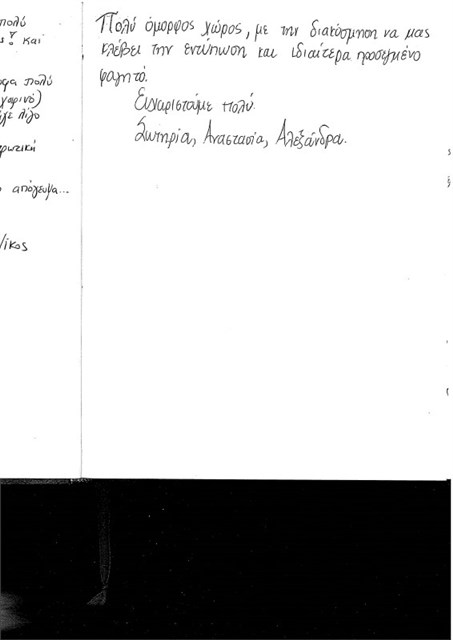 πολύ
ς! και
φα πολύ
χαρινό)
λίγο
ρωτική
απόγευμα...
Νίκος
Πολύ όμορφος χώρος, με την διακόσμηση να μας
κλέβει την εντύπωση και ιδιαίτερα προσεγμένο
φαγητό.
Ευχαριστούμε πολύ.
Σωτηρία, Αναστασία, Αλεξάνδρα.